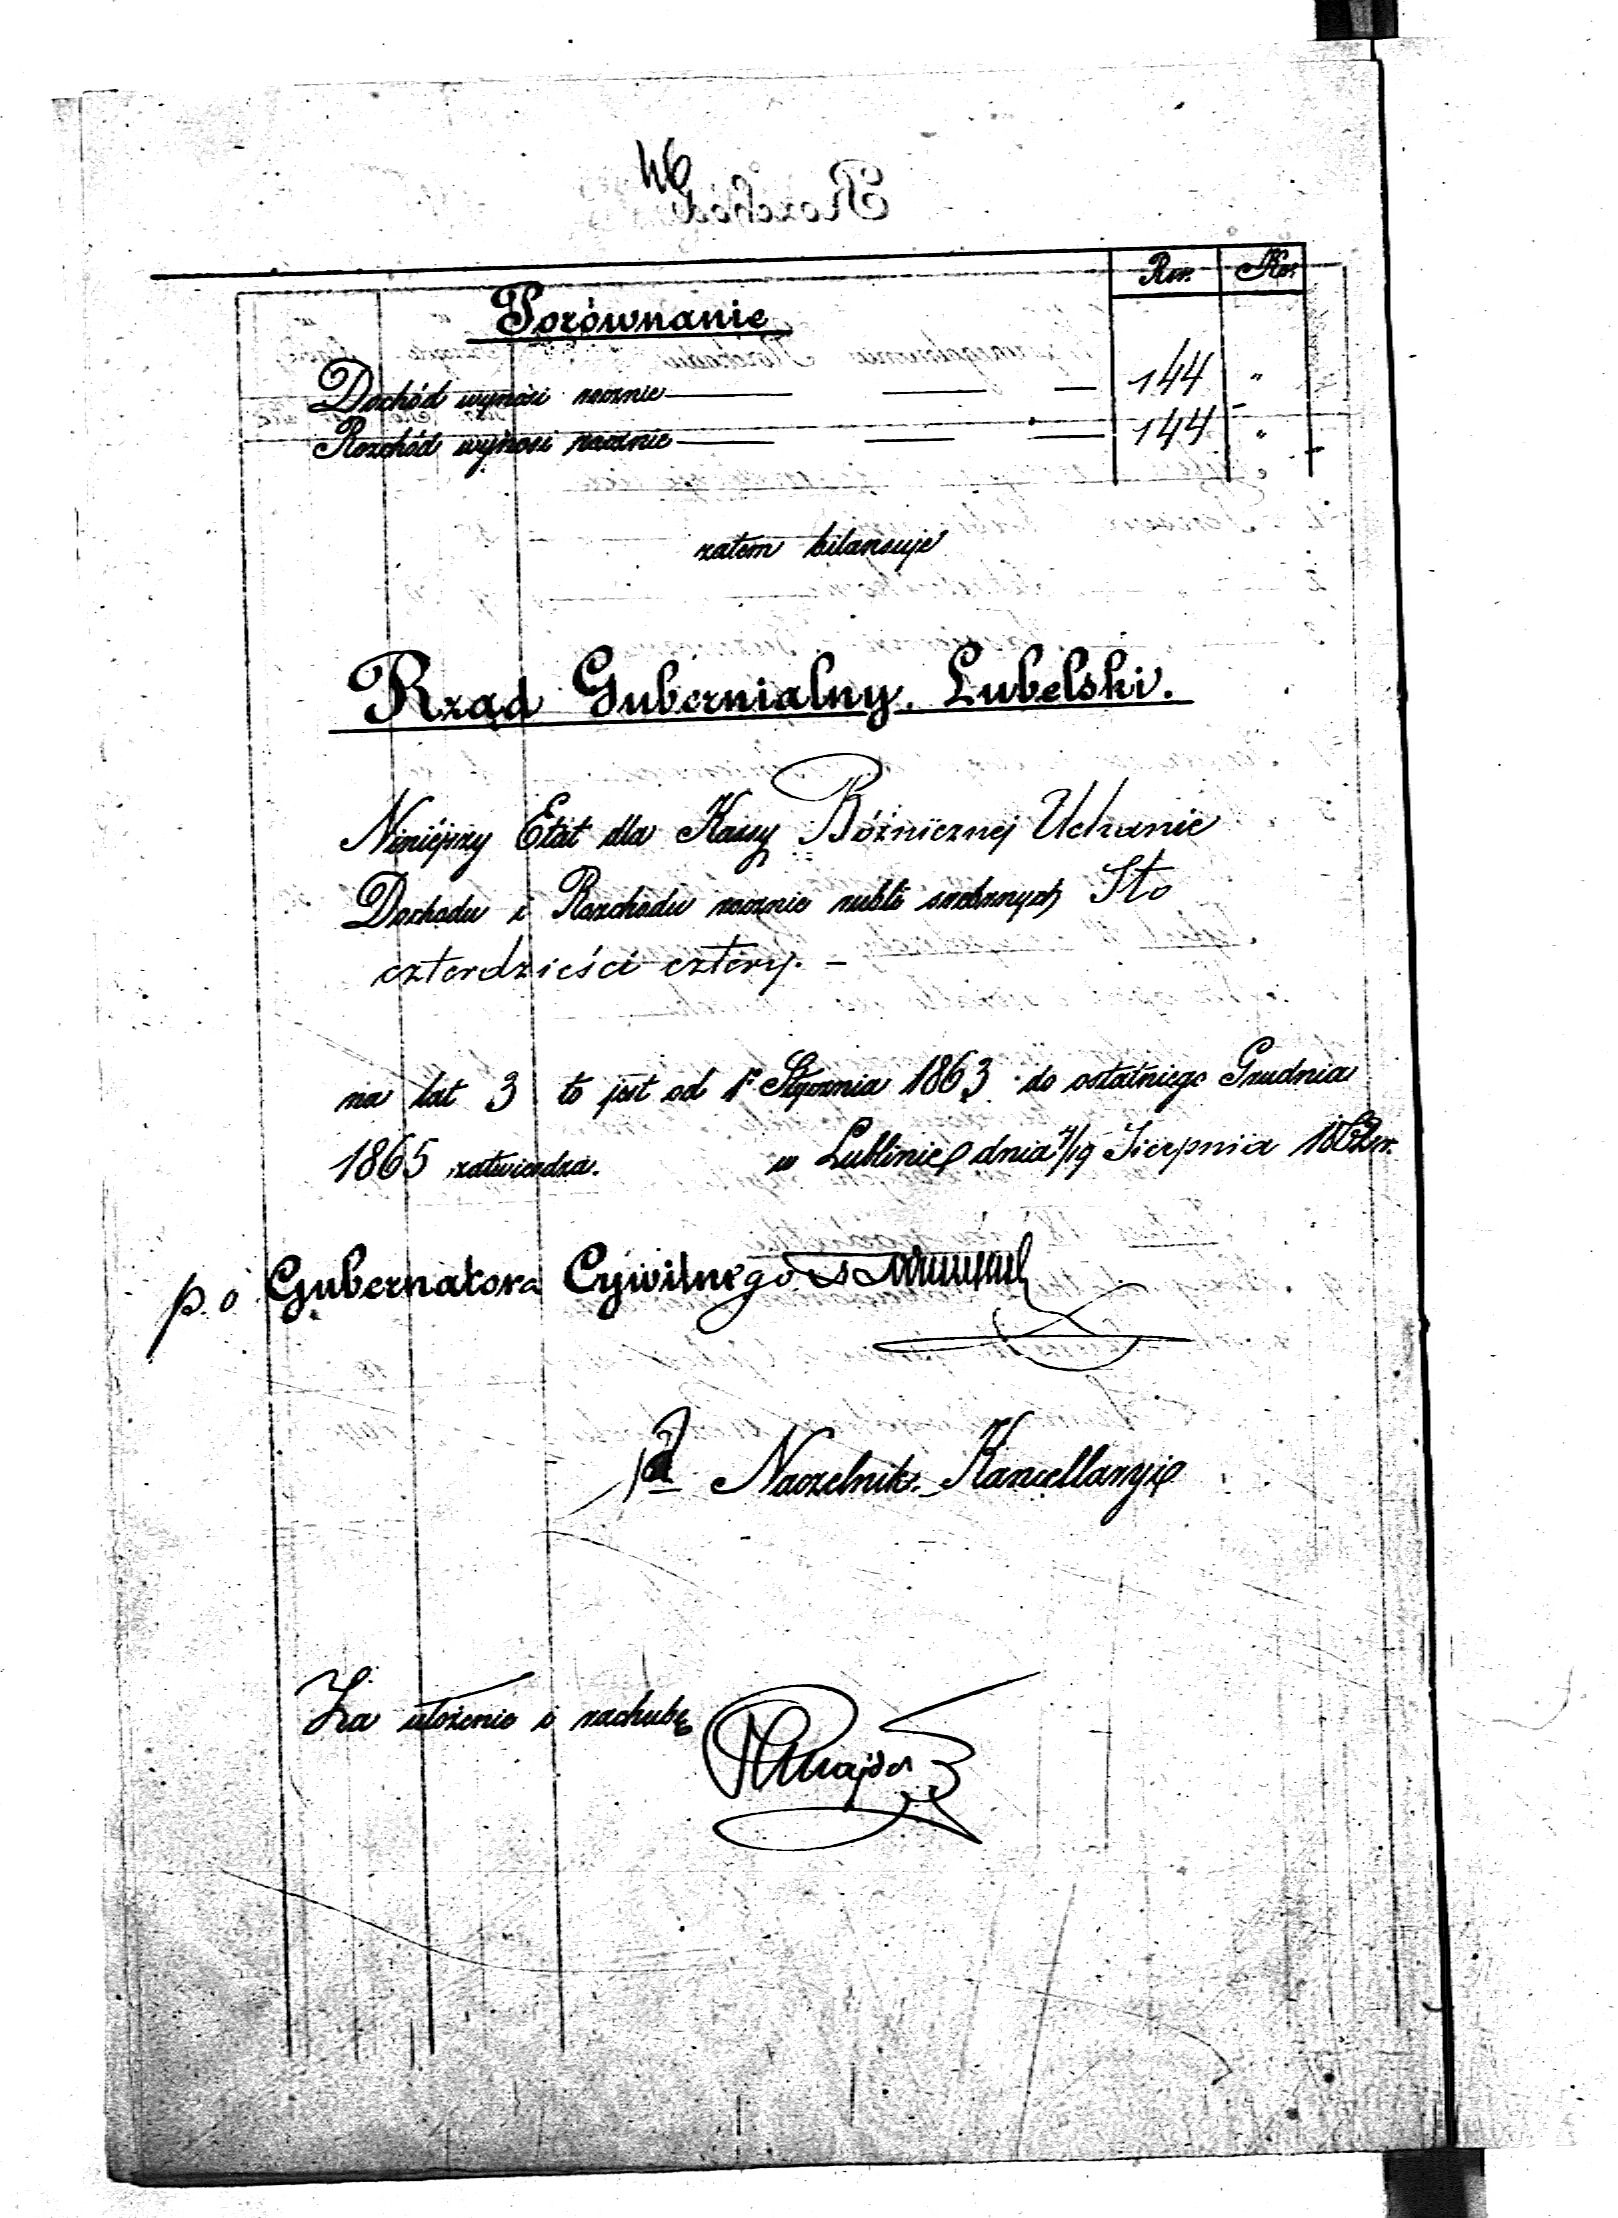 46
Rsr. Ko:
Porównanie
Dochód wynosi rocznie 144 "
Rozchód wynosi rocznie 144 "
zatem bilansuje
Rząd Gubernialny Lubelski.
Niniejszy Etat dla Kassy Bóżnicznej Uchanie
Dochodu i Rozchodu rocznie rubli srebrnych Sto
czterdzieści cztery. –
na lat 3 to jest od 1o Stycznia 1863 do ostatniego Grudnia
1865 zatwierdza. w Lublinie dnia 7/19 Sierpnia 1862 r.
p. o Gubernatora Cywilnego
Naczelnik Kancellaryi
Za ułożenie i rachubę